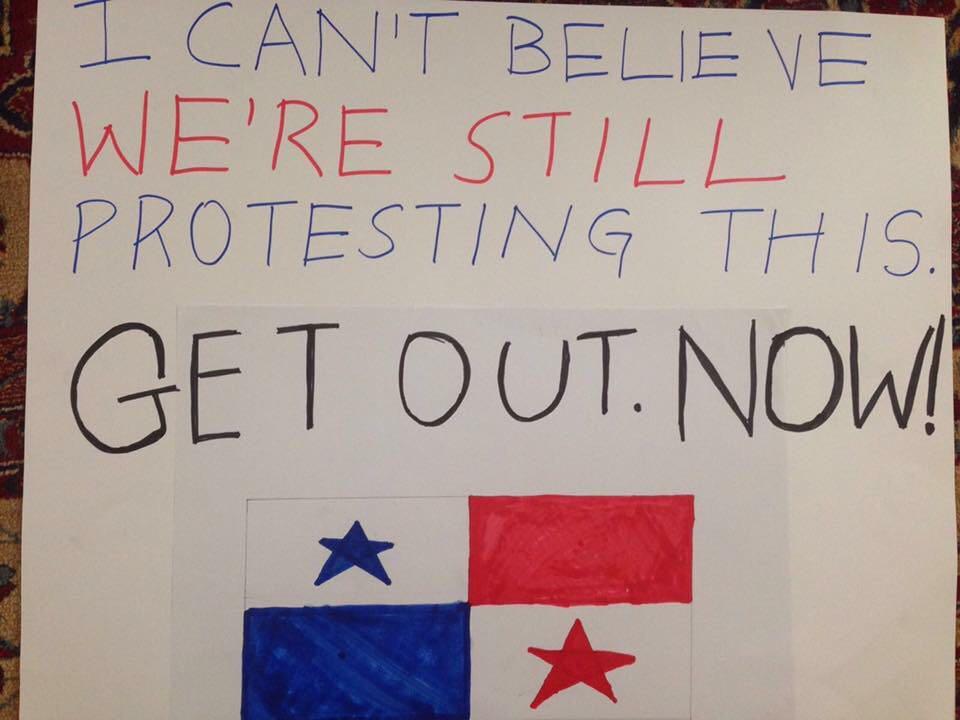 I CAN'T BELIEVE
WE'RE STILL
PROTESTING THIS.
GET OUT. NOW!